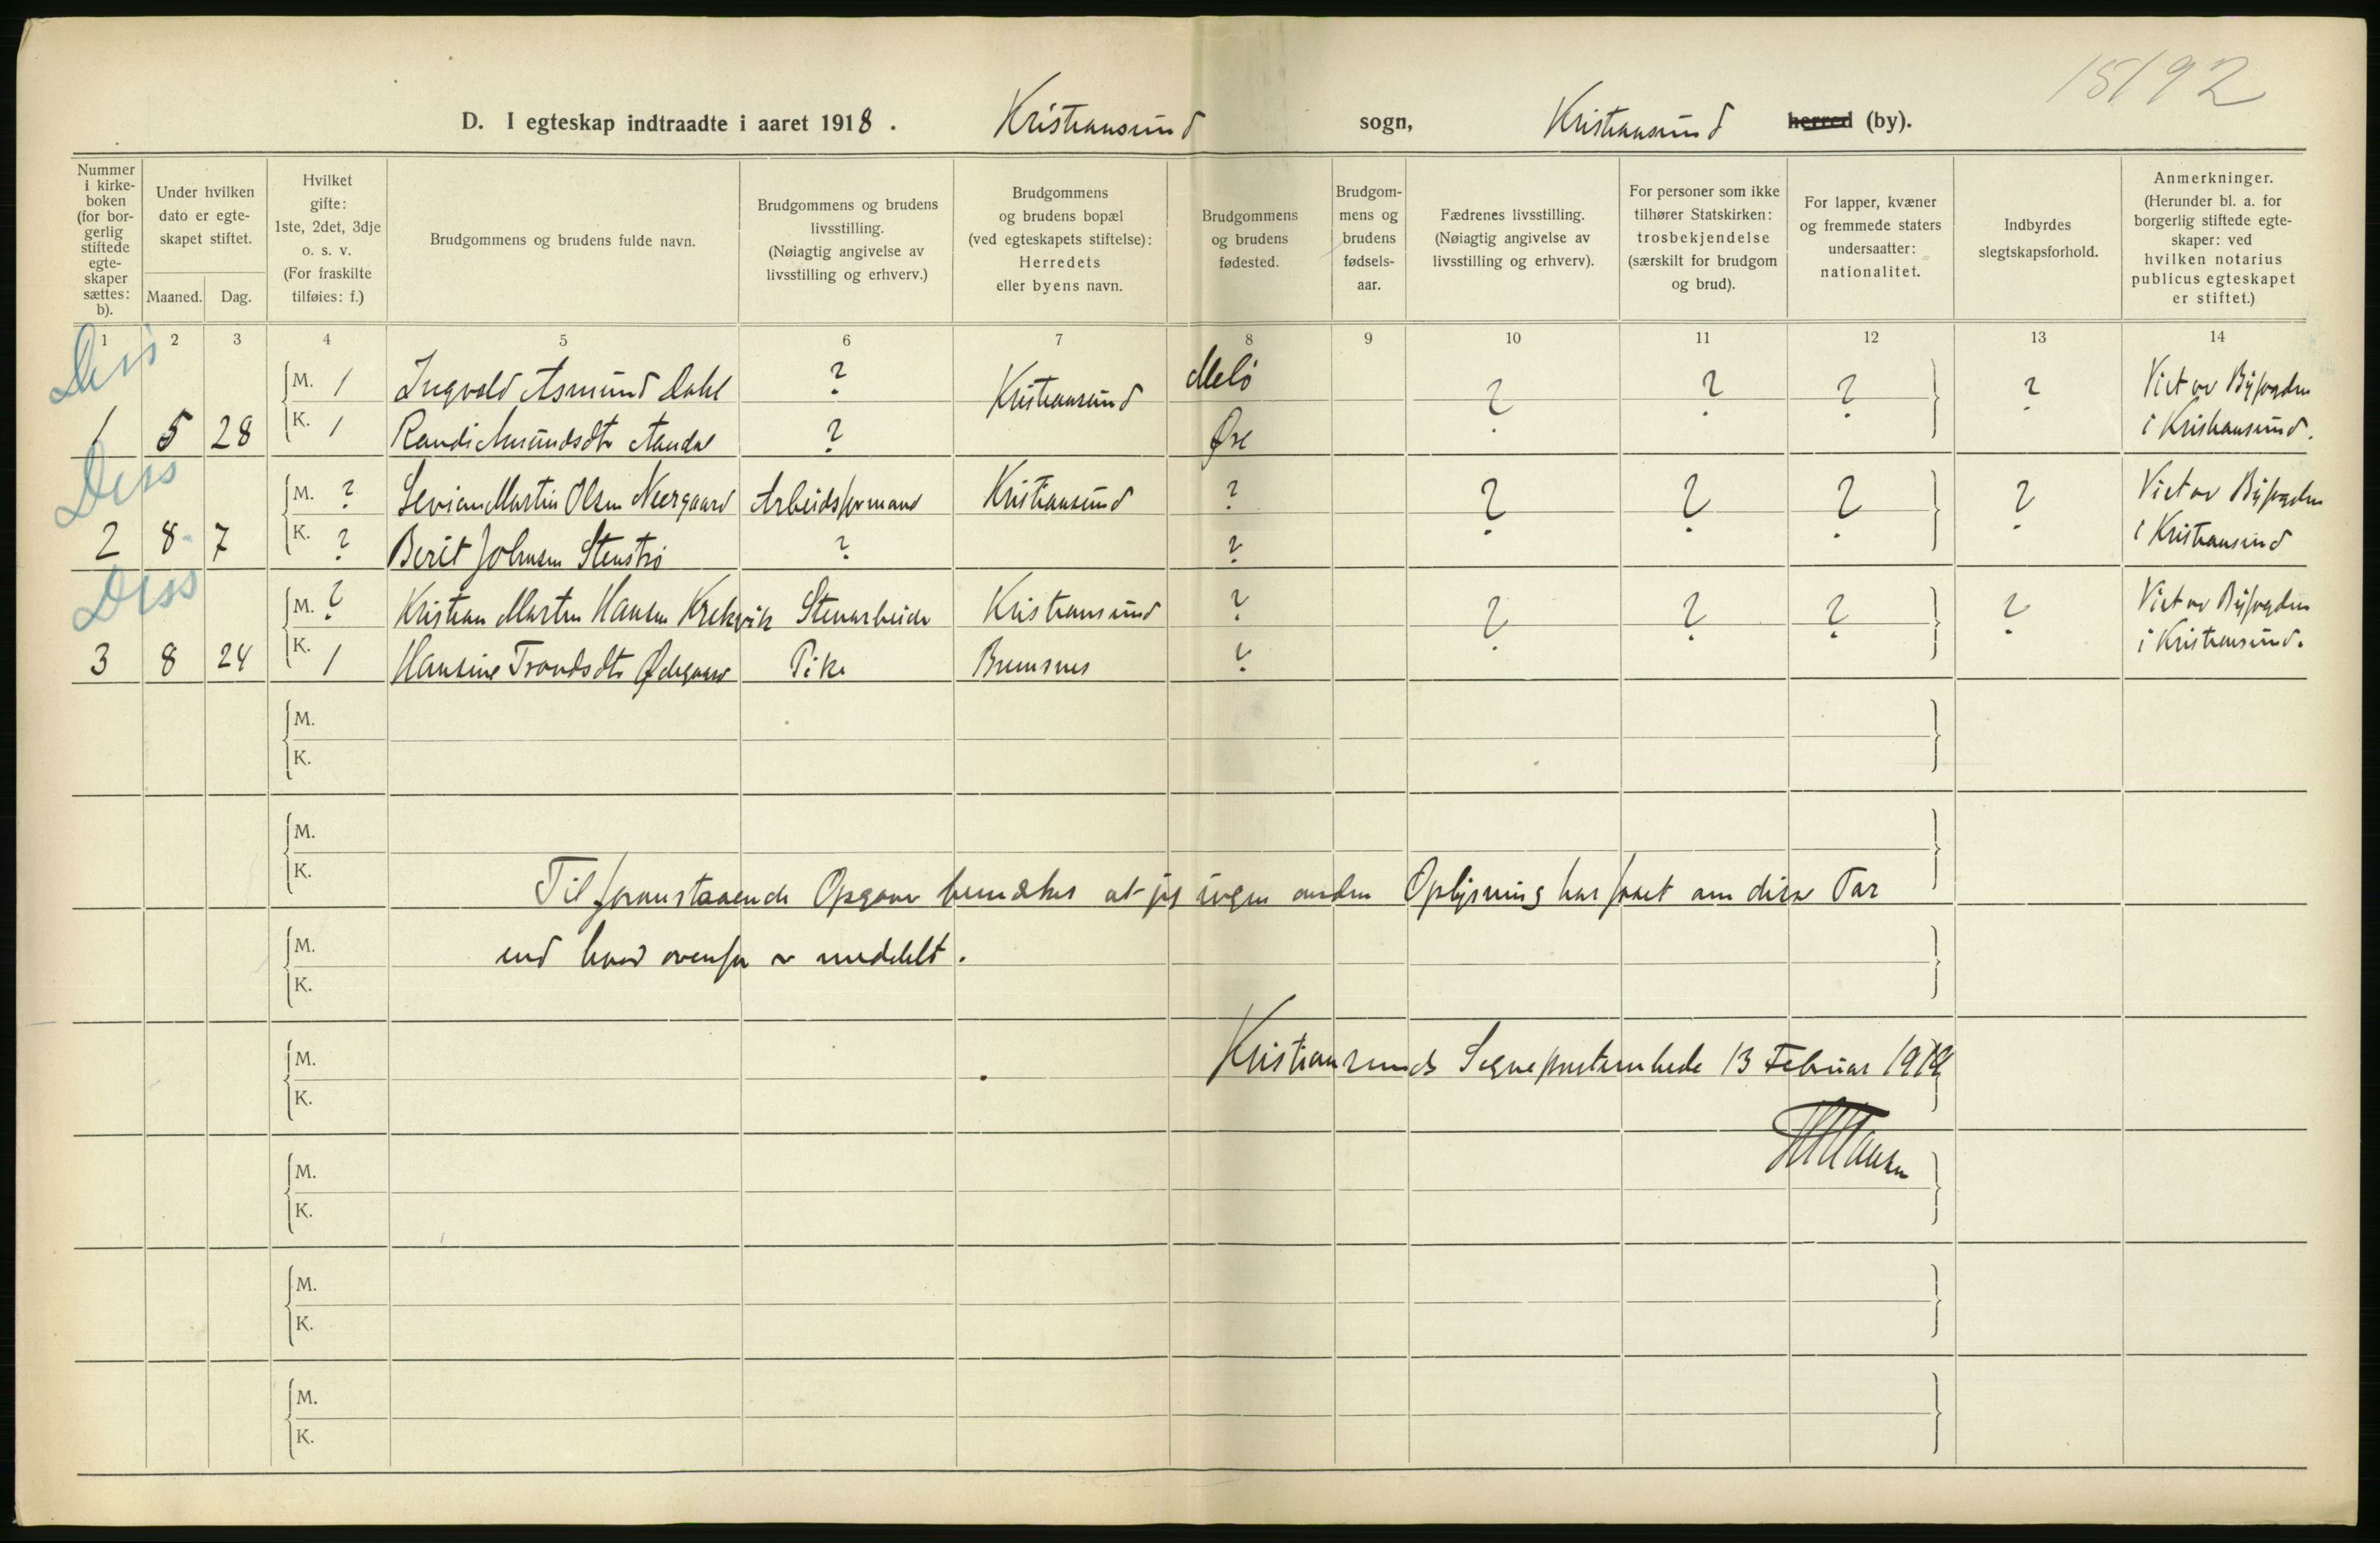 15192
D. I egteskap indtraadte i aaret 1918. Kristiansund sogn, Kristiansund herred (by).
Nummer
i kirke-
boken
(for bor-
gerlig
stiftede
egte-
skaper
sættes:
b).
Under hvilken
dato er egte-
skapet stiftet.
Maaned. Dag.
Hvilket
gifte:
1ste, 2det, 3dje
o. s. v.
(For fraskilte
tilføies: f.)
Brudgommens og brudens fulde navn.
Brudgommens og brudens
livsstilling.
(Nøiagtig angivelse av
livsstilling og erhverv.)
Brudgommens
og brudens bopæl
(ved egteskapets stiftelse):
Herredets
eller byens navn.
Brudgommens
og brudens
fødested.
Brudgom-
mens og
brudens
fødsels-
aar.
Fædrenes livsstilling.
(Nøiagtig angivelse av
livsstilling og erhverv).
For personer som ikke
tilhører Statskirken:
trosbekjendelse
(særskilt for brudgom
og brud).
For lapper, kvæner
og fremmede staters
undersaatter:
nationalitet.
Indbyrdes
slegtskapsforhold.
Anmerkninger.
(Herunder bl. a. for
borgerlig stiftede egte-
skaper: ved
hvilken notarius
publicus egteskapet
er stiftet.)
1 2 3 4 5 6 7 8 9 10 11 12 13 14
Diss
M. 1 Ingvald Asmund Dahl ? Kristiansund Melö ? ? ? ? Viet av Byfogden
1 5 28 K. 1 Randi Amundsdtr Aandal ? Øre i Kristiansund.
Diss
M. ? Martin Olsen Neergaard Arbeidsformand Kristiansund ? ? ? ? ? Viet av Byfogden
2 8 7 K. ? Berit Johnsen Stenströ ? ? i Kristiansund
Diss
M. ? Kristian Martin Hansen Krekvik Stenarbeider Kristiansund ? ? ? ? ? Viet av Byfogden
3 8 24 K. 1 Hansine Trondsdtr Ødegaard Pike Bremsnes ? i Kristiansund.
M.
K.
M.
K.
Til foranstaaende Opgave bemærkes at jeg ingen anden Oplysning har faaet om disse Par
end hvad ovenfor er meddelt.
M.
K.
Kristiansunds Sogneprestembede 13 Februar 1919
M.
K.
Hansen
M.
K.
M.
K.
M.
K.